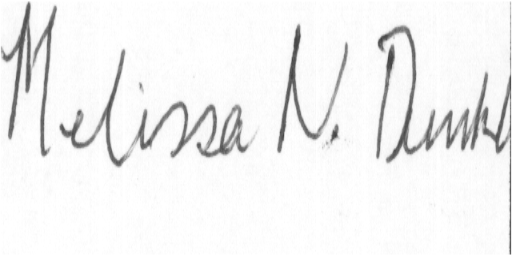 Melissa N. Dunkl